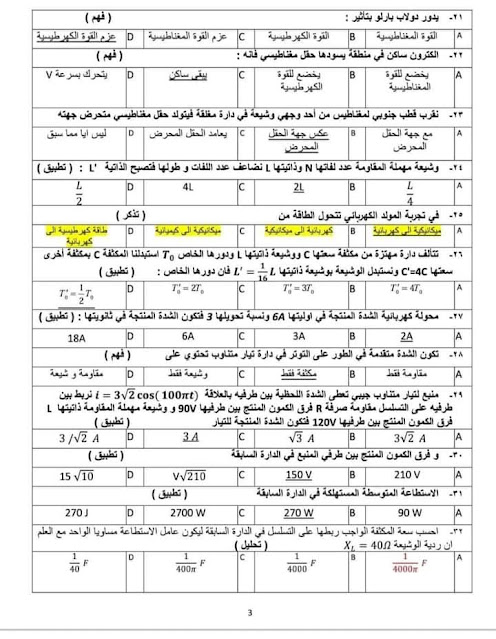 ٢١- يدور دولاب بارلو بتأثير : ( فهم )
A القوة المغناطيسية B القوة الكهرطيسية C عزم القوة المغناطيسية D عزم القوة الكهرطيسية
٢٢- الكترون ساكن في منطقة يسودها حقل مغناطيسي فانه : ( فهم )
A يخضع للقوة المغناطيسية B يخضع للقوة الكهرطيسية C يبقى ساكن D يتحرك بسرعة V
٢٣- نقرب قطب جنوبي لمغناطيس من أحد وجهي وشيعة في دارة مغلقة فيتولد حقل مغناطيسي متحرض جهته
A مع جهة الحقل المحرض B عكس جهة الحقل المحرض C يعامد الحقل المحرض D ليس ايا مما سبق
٢٤- وشيعة مهملة المقاومة عدد لفاتها N وذاتيتها L نضاعف عدد اللفات و طولها فتصبح الذاتية L' : ( تطبيق )
A L/4 B 2L C 4L D L/2
٢٥- في تجربة المولد الكهربائي تتحول الطاقة من ( تذكر )
A ميكانيكية الى كهربائية B كهربائية الى ميكانيكية C ميكانيكية الى كيميائية D طاقة كهرطيسية الى كهربائية
٢٦- تتألف دارة مهتزة من مكثفة سعتها C ووشيعة ذاتيتها L ودورها الخاص T₀ استبدلنا المكثفة C بمكثفة أخرى
سعتها C'=4C ونستبدل الوشيعة بوشيعة ذاتيتها L' = 1/16 L فان دورها الخاص : ( تطبيق )
A T₀' = 4T₀ B T₀' = 3T₀ C T₀' = 2T₀ D T₀' = 1/2 T₀
٢٧- محولة كهربائية الشدة المنتجة في اوليتها 6A ونسبة تحويلها 3 فتكون الشدة المنتجة في ثانويتها : ( تطبيق )
A 2A B 3A C 6A D 18A
٢٨- تكون الشدة متقدمة في الطور على التوتر في دارة تيار متناوب تحتوي على ( فهم )
A مقاومة فقط B مكثفة فقط C وشيعة فقط D مقاومة و شيعة
٢٩- منبع لتيار متناوب جيبي تعطى الشدة اللحظية بين طرفيه بالعلاقة i = 3√2 cos( 100πt) نربط بين
طرفيه على التسلسل مقاومة صرفة R فرق الكمون المنتج بين طرفيها 90V و وشيعة مهملة المقاومة ذاتيتها L
فرق الكمون المنتج بين طرفيها 120V فتكون الشدة المنتجة للتيار ( تطبيق )
A 3√2 A B √3 A C 3 A D 3/√2 A
٣٠- و فرق الكمون المنتج بين طرفي المنبع في الدارة السابقة ( تطبيق )
A 210 V B 150 V C V√210 D 15 √10
٣١- الاستطاعة المتوسطة المستهلكة في الدارة السابقة ( تطبيق )
A 90 W B 270 W C 2700 W D 270 J
٣٢- احسب سعة المكثفة الواجب ربطها على التسلسل في الدارة السابقة ليكون عامل الاستطاعة مساويا الواحد مع العلم
ان ردية الوشيعة X_L = 40Ω ( تحليل )
A 1/4000π F B 1/4000 F C 1/400π F D 1/40 F
3